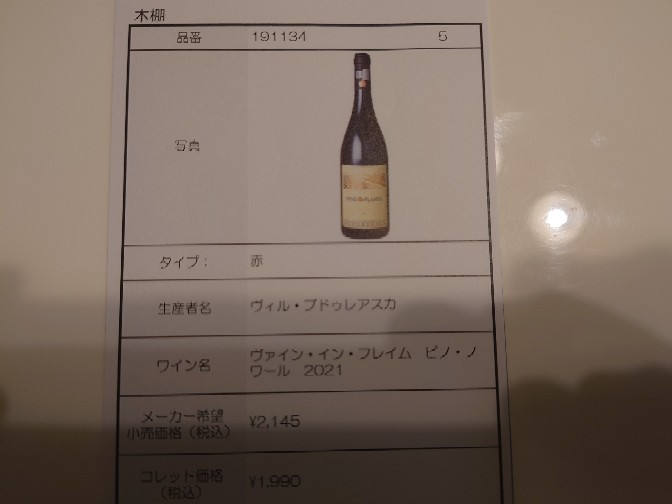 木棚
品番 191134 5
写真
タイプ： 赤
生産者名 ヴィル・ブドゥレアスカ
ワイン名 ヴァイン・イン・フレイム ピノ・ノ
ワール 2021
メーカー希望
小売価格（税込） ¥2,145
コレット価格
（税込） ¥1,990